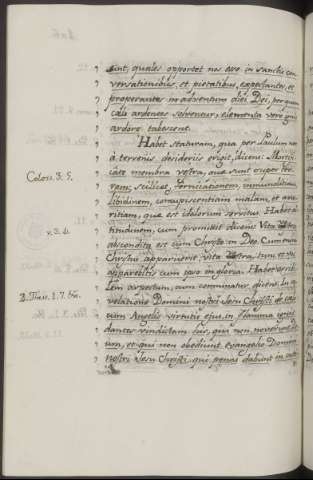 sint, quales oportet nos esse in sanctis con
versationibus, et pietatibus, expectantes, et
properantes in adventum diei Dei, per quem
cæli ardentes solventur, elementa vero ignis
ardore tabescent.
Habet staturam, quia per Paulum nos
à terrenis desideriis erigit, dicens: Mortifi
Coloss. 3. 5.
cate membra vestra, quæ sunt super ter
ram; scilicet fornicationem, immunditiam,
libidinem, concupiscentiam malam, et ava
ritiam, quæ est idolorum servitus. Habet al
v. 3. 4.
titudinem, cum promittit dicens: Vita vestra
abscondita est cum Christo in Deo. Cum enim
Christus apparuerit, vita vestra, tunc et vos
apparebitis cum ipso in gloria. Habet terribi
2. Thess. 1. 7. &c.
lem aspectum, cum comminatur, dicens: In re
velatione Domini nostri Jesu Christi de cælo
cum Angelis virtutis ejus, in flamma ignis
dantis vindictam his, qui non noverunt De
um, et qui non obediunt evangelio Domini
nostri Jesu Christi: qui pœnas dabunt in inte